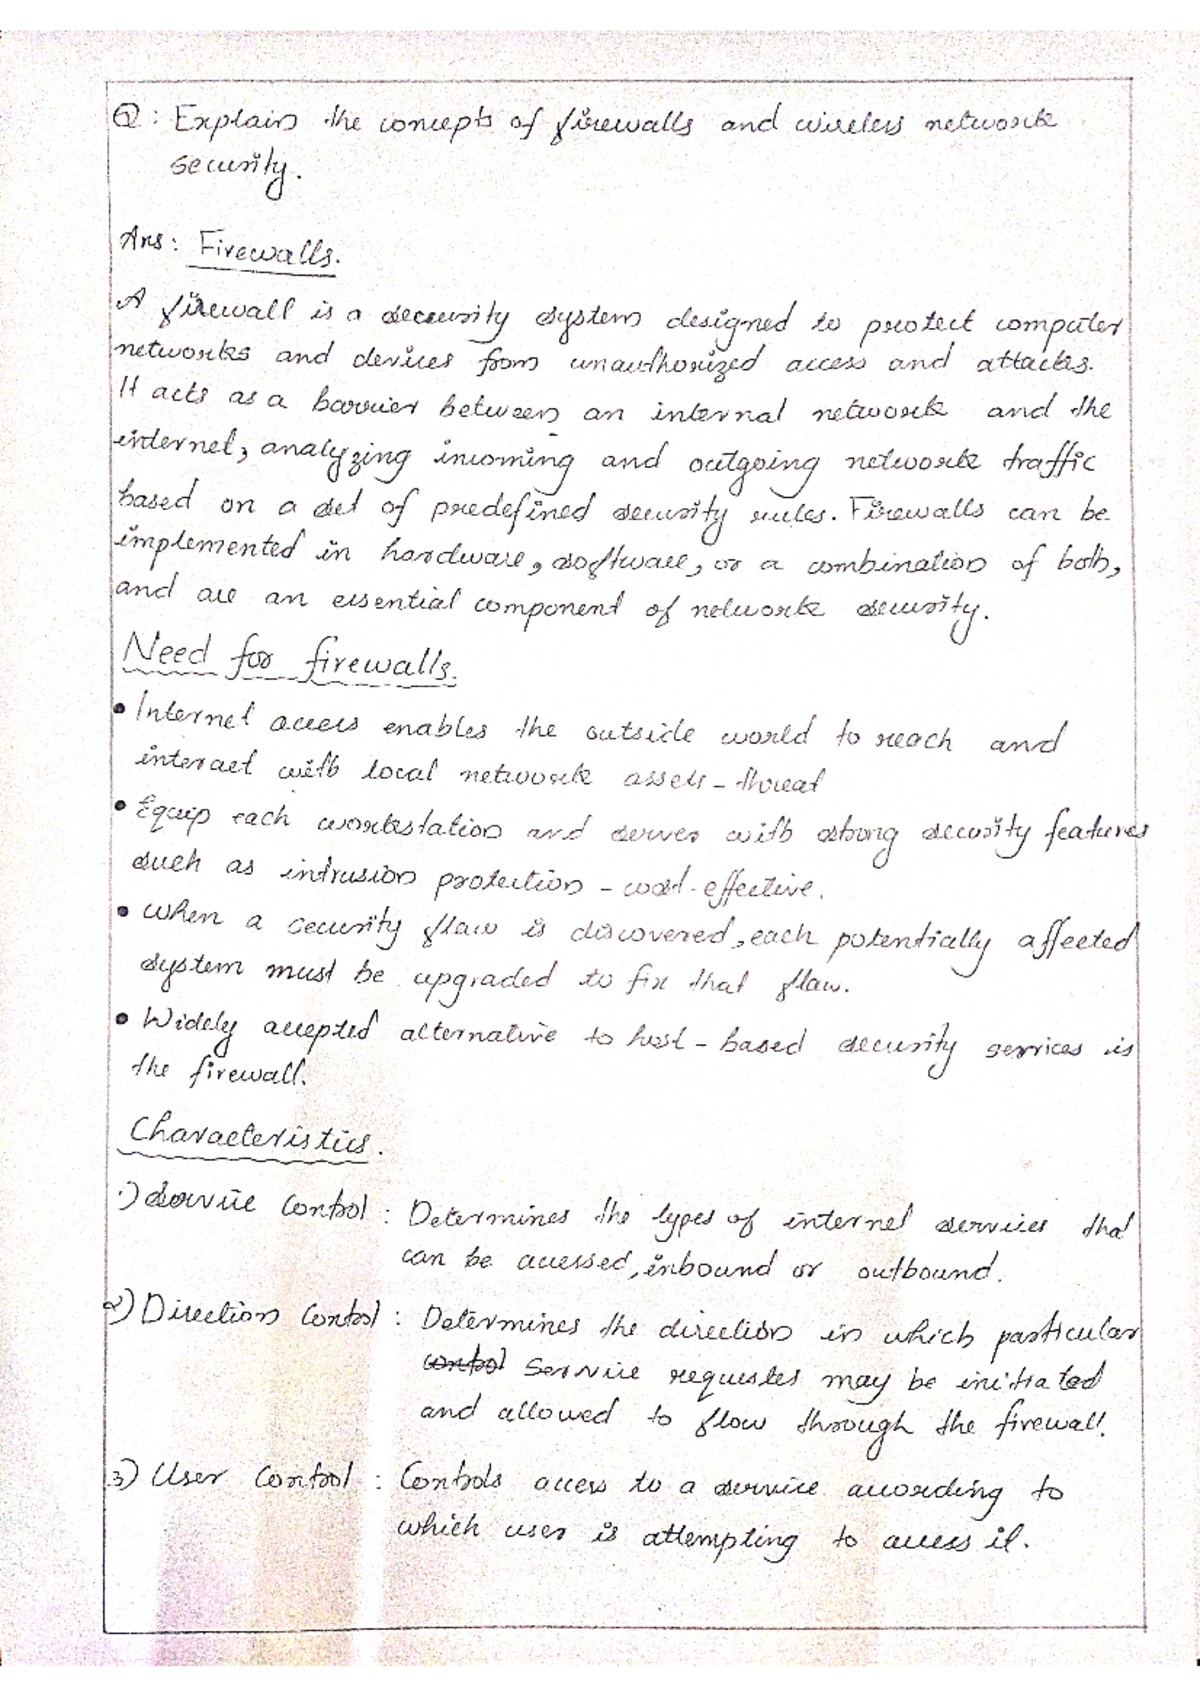 Q: Explain the concepts of firewalls and wireless network
security.
Ans: Firewalls.
A firewall is a security system designed to protect computer
networks and devices from unauthorized access and attacks.
It acts as a barrier between an internal network and the
internet, analyzing incoming and outgoing network traffic
based on a set of predefined security rules. Firewalls can be
implemented in hardware, software, or a combination of both,
and are an essential component of network security.
Need for firewalls.
• Internet access enables the outside world to reach and
interact with local network assets - threat
• Equip each workstation and server with strong security features
such as intrusion protection - cost-effective.
• When a security flaw is discovered, each potentially affected
system must be upgraded to fix that flaw.
• Widely accepted alternative to host-based security services is
the firewall.
Characteristics.
1) Service Control : Determines the types of internet services that
can be accessed, inbound or outbound.
2) Direction Control : Determines the direction in which particular
control service requestes may be initiated
and allowed to flow through the firewall.
3) User Control : Controls access to a service according to
which user is attempting to access it.